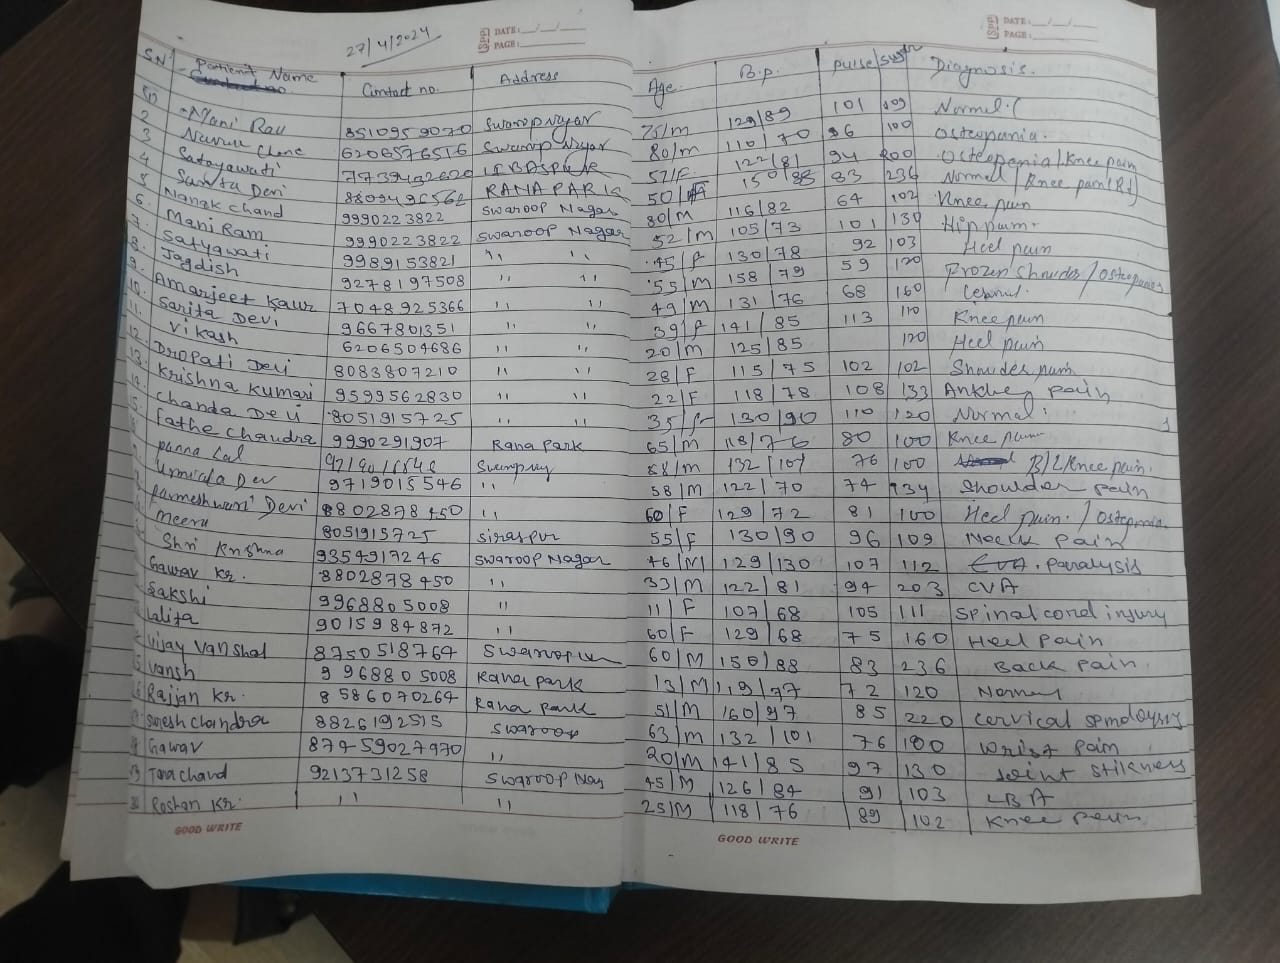 27/4/2024
DATE: __/__/__
PAGE:
DATE: __/__/__
PAGE:
S.N Patient Name Contact no. Address Age B.p. pulse Diagnosis.
Mani 8510959070 Swaroop 75/m 129/89 101 109 Normal.
2 6206576516 Swaroop 80/m 110/70 96 100 Osteopania.
3 Satayawati 52/F 122/81 94 200 Osteopenia/Knee pain
4 Sarita Devi RANA PARK 50/ 150/88 83 236 Normal / Knee pain (Rt)
5 Nanak chand 9990223822 Swaroop Nagar 80/M 116/82 64 102 Knee pain
6. Mani Ram 9990223822 Swaroop Nagar 52/M 105/73 101 130 Hip pain.
7. Satyawati 9989153821 '' '' 45/f 130/78 92 103 Heel pain
8. Jagdish 9278197508 '' '' 55/M 158/79 59 120 Frozen Shoulder / Osteopania
9. Amarjeet Kaur 7048925366 '' '' 49/M 131/76 68 160
10. Sarita Devi 9667801351 '' '' 39/f 141/85 113 110 Knee pain
11. Vikash 6206504686 '' '' 20/M 125/85 120 Heel pain
12. Dropati Devi 8083807210 '' '' 28/F 115/75 102 102 Shoulder pain
13. Krishna Kumari 9599562830 '' '' 22/F 118/78 108 133 pain
Chanda Devi 8051915725 '' '' 35/f 130/90 110 120 Normal
Fathe Chandra 9990291907 Rana Park 65/M 118/76 80 100 Knee pain
panna Lal 132/107 76 100 B/L Knee pain.
Dev 9719015546 '' 58/M 122/70 74 134 Shoulder pain
parmeshwari Devi 8802878450 '' 60/F 129/72 81 100 Heel pain. / Osteopania
Meera 8051915725 siraspur 55/F 130/90 96 109 Neck pain
Shri Krishna 9354917246 Swaroop Nagar 46/M 129/130 107 112 Paralysis
Gawav Kr. 8802878450 '' 33/M 122/81 94 203 CVA
Sakshi 9968805008 '' 11/F 107/68 105 111 Spinal cord injury
Lalita 9015984872 '' 60/F 129/68 75 160 Heel Pain
Vijay Vanshal 8750518764 60/M 150/88 83 236 Back pain
Vansh 9968805008 Rana park 13/M 119/77 72 120 Normal
Rajjan Kr. 8586070264 Rana park 51/M 160/97 85 220 cervical
Suresh Chandra 8826192515 Swaroop 63/m 132/101 76 100 wrist pain
Gawav 87459027970 '' 20/M 141/85 97 130 Joint
Tara chand 9213731258 Swaroop Nag 45/M 126/84 91 103 LBA
30 Roshan Kr. '' '' 25/M 118/76 89 102 Knee pain
GOOD WRITE
GOOD WRITE